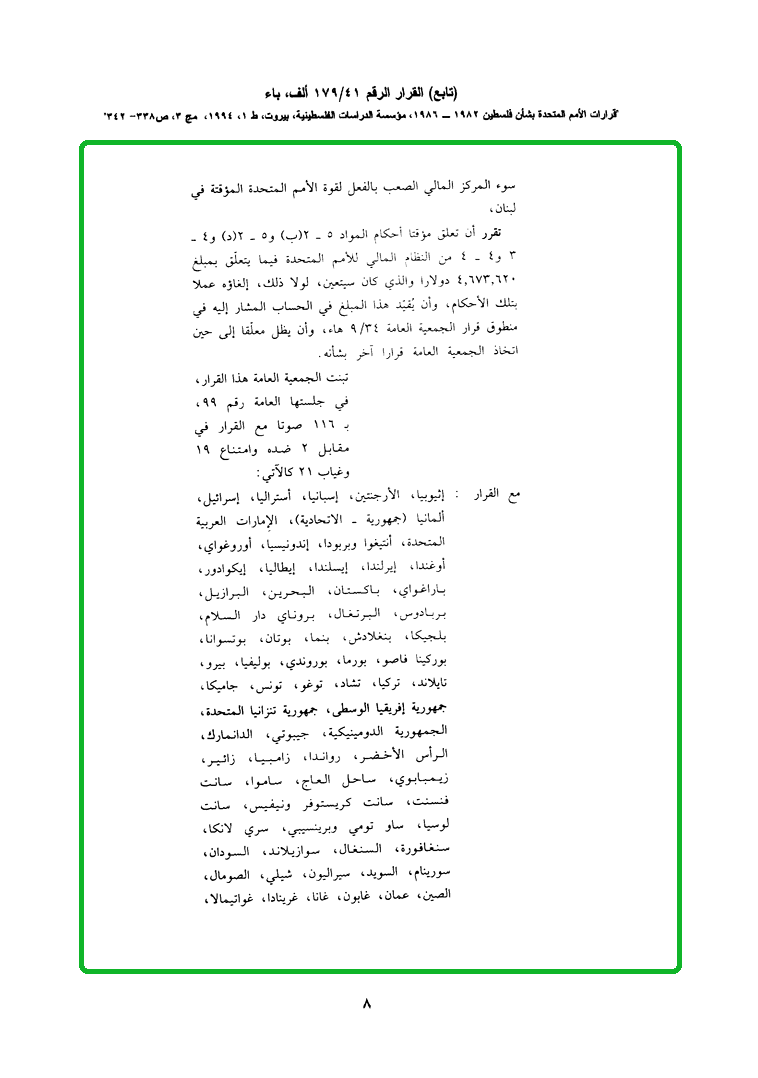 (تابع) القرار الرقم ١٧٩/٤١ ألف، باء
"قرارات الأمم المتحدة بشأن فلسطين ١٩٨٢ ــ ١٩٨٦، مؤسسة الدراسات الفلسطينية، بيروت، ط ١، ١٩٩٤، مج ٣، ص٣٣٨- ٣٤٢"
سوء المركز المالي الصعب بالفعل لقوة الأمم المتحدة المؤقتة في
لبنان،
تقرر أن تعلق مؤقتا أحكام المواد ٥ ـ ٢(ب) و٥ ـ ٢(د) و٤ ـ
٣ و٤ ـ ٤ من النظام المالي للأمم المتحدة فيما يتعلّق بمبلغ
٤,٦٧٣,٦٢٠ دولارا والذي كان سيتعين، لولا ذلك، إلغاؤه عملا
بتلك الأحكام، وأن يُقيّد هذا المبلغ في الحساب المشار إليه في
منطوق قرار الجمعية العامة ٩/٣٤ هاء، وأن يظل معلّقا إلى حين
اتخاذ الجمعية العامة قرارا آخر بشأنه.
تبنت الجمعية العامة هذا القرار،
في جلستها العامة رقم ٩٩،
بـ ١١٦ صوتا مع القرار في
مقابل ٢ ضده وامتناع ١٩
وغياب ٢١ كالآتي:
مع القرار : إثيوبيا، الأرجنتين، إسبانيا، أستراليا، إسرائيل،
ألمانيا (جمهورية ـ الاتحادية)، الإمارات العربية
المتحدة، أنتيغوا وبربودا، إندونيسيا، أوروغواي،
أوغندا، إيرلندا، إيسلندا، إيطاليا، إيكوادور،
باراغواي، باكستان، البحرين، البرازيل،
بربادوس، البرتغال، بروناي دار السلام،
بلجيكا، بنغلادش، بنما، بوتان، بوتسوانا،
بوركينا فاصو، بورما، بوروندي، بوليفيا، بيرو،
تايلاند، تركيا، تشاد، توغو، تونس، جاميكا،
جمهورية إفريقيا الوسطى، جمهورية تنزانيا المتحدة،
الجمهورية الدومينيكية، جيبوتي، الدانمارك،
الرأس الأخضر، رواندا، زامبيا، زائير،
زيمبابوي، ساحل العاج، ساموا، سانت
فنسنت، سانت كريستوفر ونيفيس، سانت
لوسيا، ساو تومي وبرينسيبي، سري لانكا،
سنغافورة، السنغال، سوازيلاند، السودان،
سورينام، السويد، سيراليون، شيلي، الصومال،
الصين، عمان، غابون، غانا، غرينادا، غواتيمالا،
٨